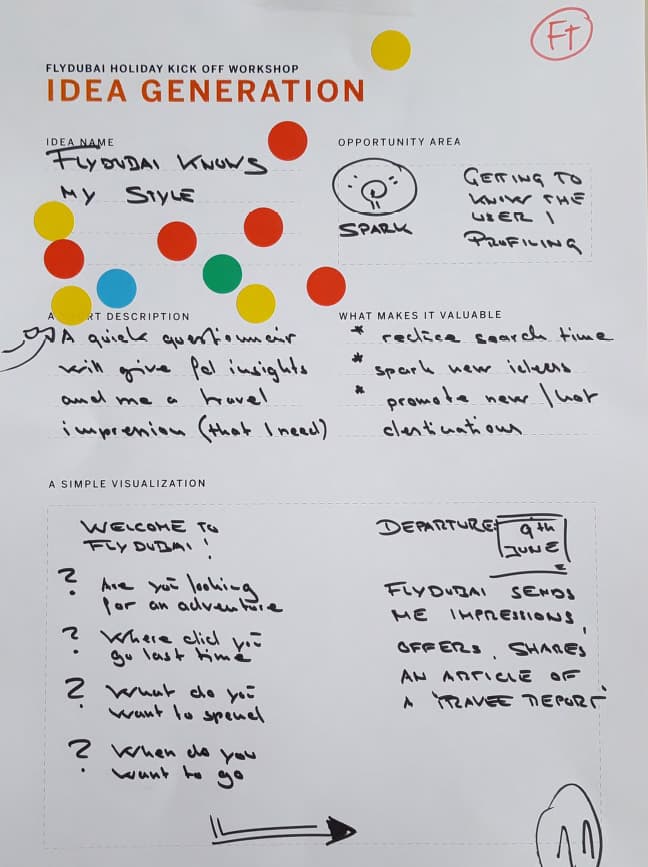 FT
FLYDUBAI HOLIDAY KICK OFF WORKSHOP
IDEA GENERATION
IDEA NAME
FLYDUBAI KNOWS
MY STYLE
OPPORTUNITY AREA
SPARK
GETTING TO
KNOW THE
USER /
PROFILING
A SHORT DESCRIPTION
A quick questionnair
will give fd insights
and me a travel
impression (that I need)
WHAT MAKES IT VALUABLE
* reduce search time
* spark new ideas
* promote new / hot
destinations
A SIMPLE VISUALIZATION
WELCOME TO
FLYDUBAI!
? Are you looking
for an adventure
? Where did you
go last time
? What do you
want to spend
? When do you
want to go
DEPARTURE: 9th
JUNE
FLYDUBAI SENDS
ME IMPRESSIONS,
OFFERS, SHARES
AN ARTICLE OF
A 'TRAVEL REPORT'
11